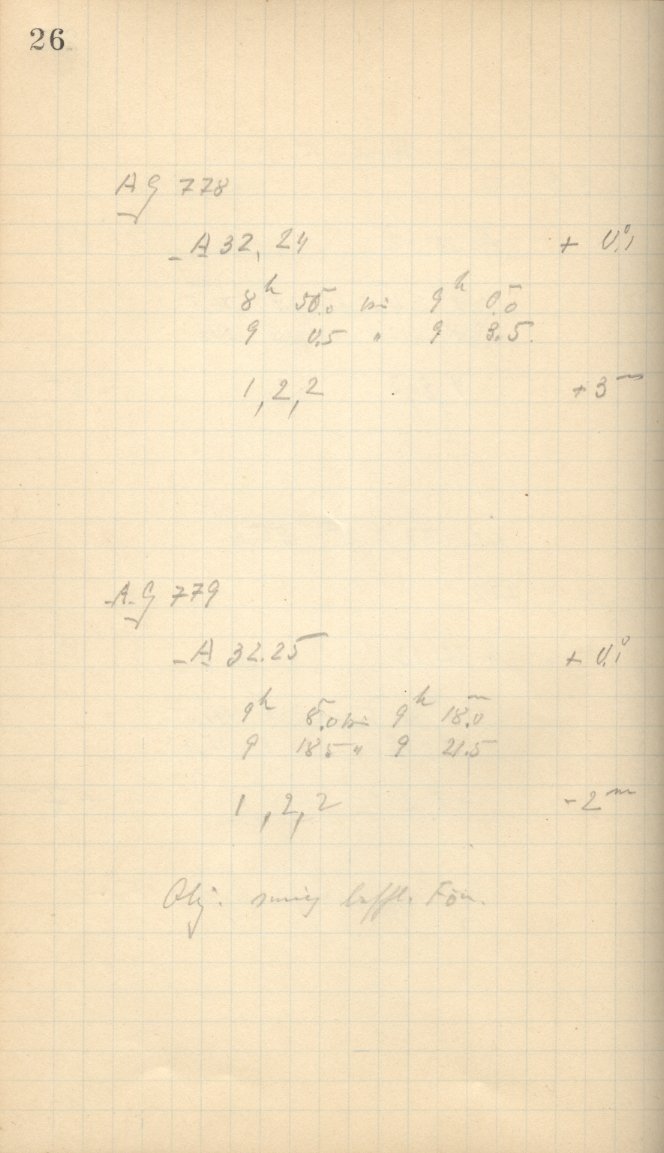 26
AG 778
A 32, 24 + 0.°1
8h 50.m0 bis 9h 0.m0
9 0.5 " 9 3.5
1, 2, 2 + 3m
A.G 779
A 32.25 + 0.°1
9h 8.m0 bis 9h 18.m0
9 18.5 " 9 21.5
1, 2, 2 - 2m
Obj.